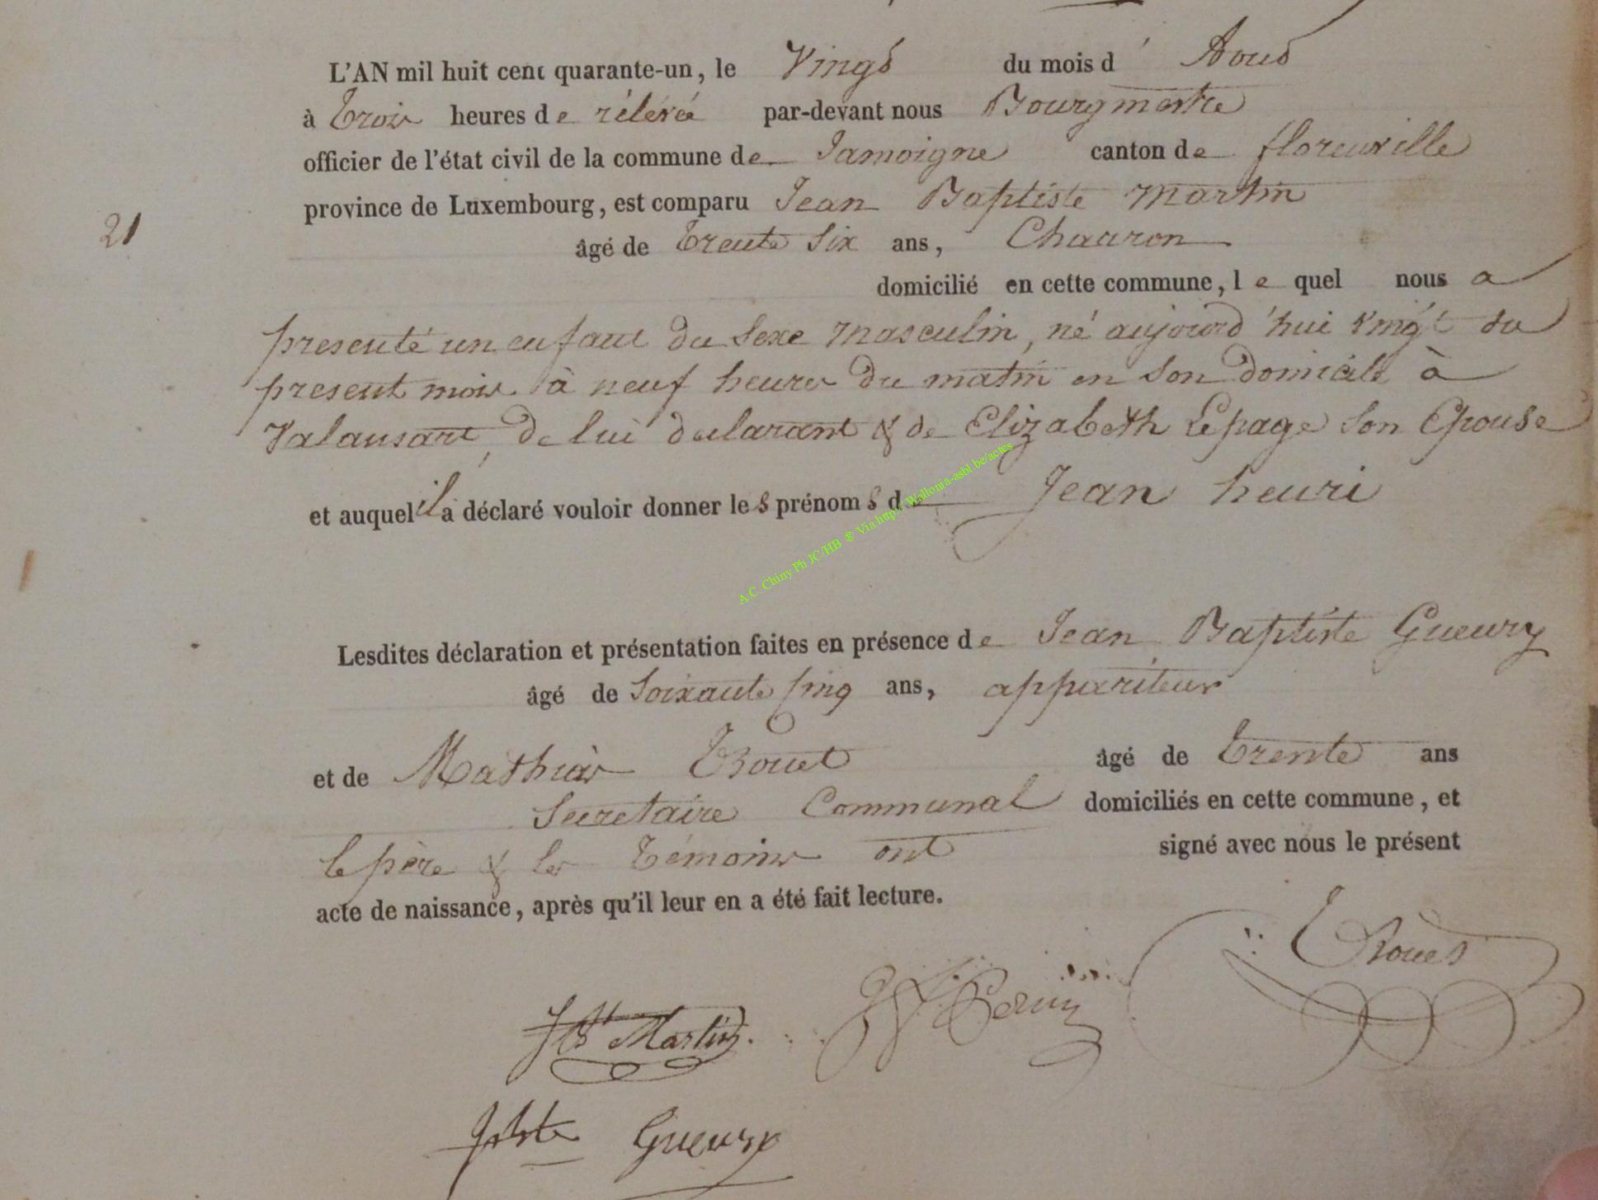 L'AN mil huit cent quarante-un, le Vingt du mois d' Aout
à trois heures de rélévée par-devant nous Bourgmestre
officier de l'état civil de la commune de Jamoigne canton de florenville
province de Luxembourg, est comparu Jean Baptiste Martin
21
âgé de trente Six ans, Charron
domicilié en cette commune, le quel nous a
presenté un enfant du Sexe masculin, né aujourd'hui vingt du
present mois à neuf heures du matin en Son domicile à
Valansart, de lui declarant & de Elizabeth Lepage Son Epouse
et auquel il a déclaré vouloir donner les prénoms de Jean henri
A.C. Chiny Ph JC HB & Via Wallonia-asbl.be/actes
Lesdites déclaration et présentation faites en présence de Jean Baptiste Gueury
âgé de Soixante Cinq ans, appariteur
et de Mathias Trouet âgé de trente ans
Secretaire Communal domiciliés en cette commune, et
le père & les témoins ont signé avec nous le présent
acte de naissance, après qu'il leur en a été fait lecture.
Trouet
JBt Martin.
JBte Gueury